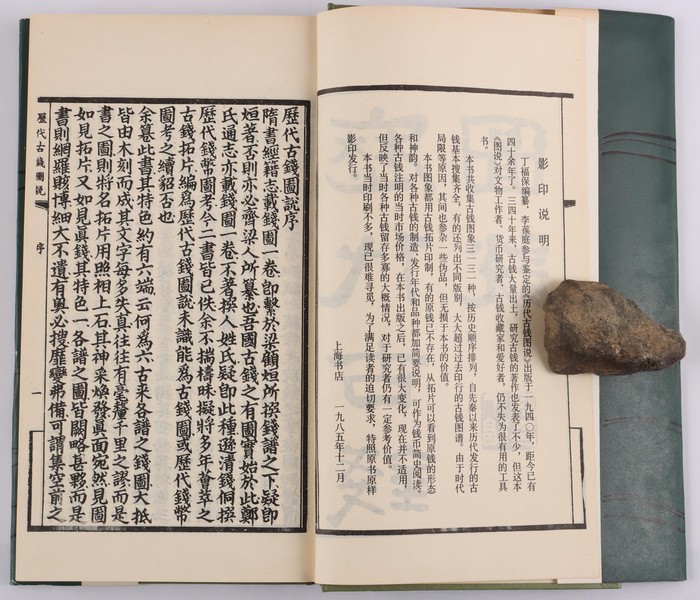 影印说明
丁福保编纂，李葆庭参与鉴定的《历代古钱图说》出版于一九四〇年，距今已有
四十余年了。三四十年来，古钱大量出土，研究古钱的著作也发表了不少，但这本
《图说》对文物工作者、货币研究者、古钱收藏家和爱好者，仍不失为很有用的工具
书。
本书共收集古钱图象三一三一种，按历史顺序排列，自先秦以来历代发行的古
钱基本搜集齐全，有的还列出不同版别，大大超过过去印行的古钱图谱。由于时代
局限等原因，其间也参杂一些伪品，但无损于本书的价值。
本书图象都用古钱拓片印制，有的原钱已不存在，从拓片可以看到原钱的形态
和神韵。对各种古钱的制造、发行年代和品种都加简要说明，可作为钱币简史阅读。
各种古钱注明的当时市场价格，在本书出版之后，已有很大变化，现在并不适用，
但反映了当时各种古钱留存多寡的大概情况，对于研究者仍有一定参考价值。
本书当时印刷不多，现已很难寻觅，为了满足读者的迫切要求，特照原书原样
影印发行。
上海书店 一九八五年十二月
歷代古錢圖說序
隋書經籍志載錢圖一卷卽繫於梁顧烜所撰錢譜之下疑卽
烜著否則亦必齊梁人所纂也吾國古錢之有圖實始於此鄭
氏通志亦載錢圖一卷不著撰人姓氏疑卽此種遜清錢侗撰
歷代錢幣圖考今二書皆已佚余不揣檮昧擬將多年薈萃之
古錢拓片編爲歷代古錢圖說未識能爲古錢圖或歷代錢幣
圖考之續貂否也
余纂此書其特色約有六端云何爲六古來各譜之錢圖大抵
皆由木刻而成其文字每多失真往往有毫釐千里之謬而是
書之圖則將名拓片用照相上石其神采煥發眞面宛然見圖
如見拓片又如見眞錢其特色一各譜之圖皆闕略甚夥而是
書則網羅賅博細大不遺有奥必搜靡變弗備可謂集空前之
歷代古錢圖說 序 一